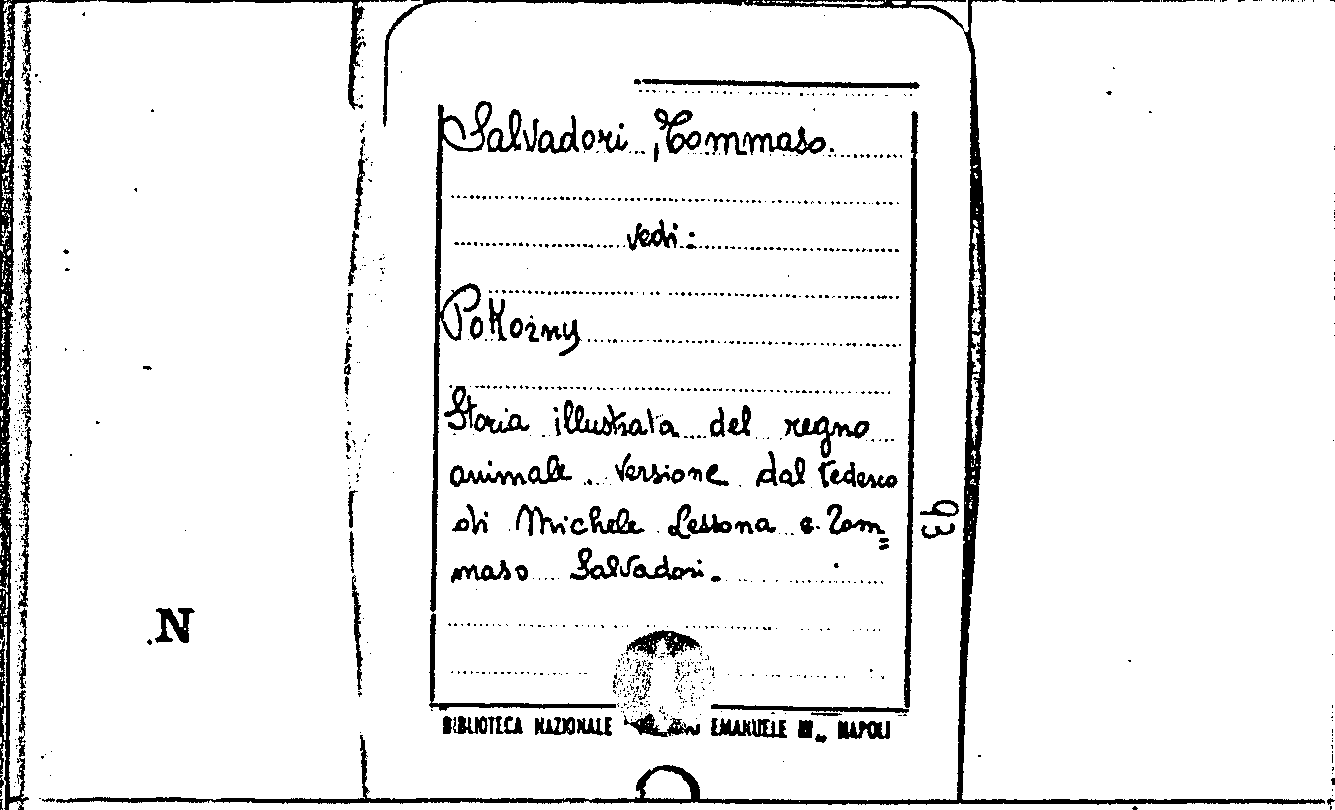 Salvadori, Tommaso.
vedi:
Pokorny
Storia illustrata del regno
animale. Versione dal tedesco
di Michele Lessona e Tom=
maso Salvadori.
93
N
BIBLIOTECA NAZIONALE EMANUELE III„ NAPOLI